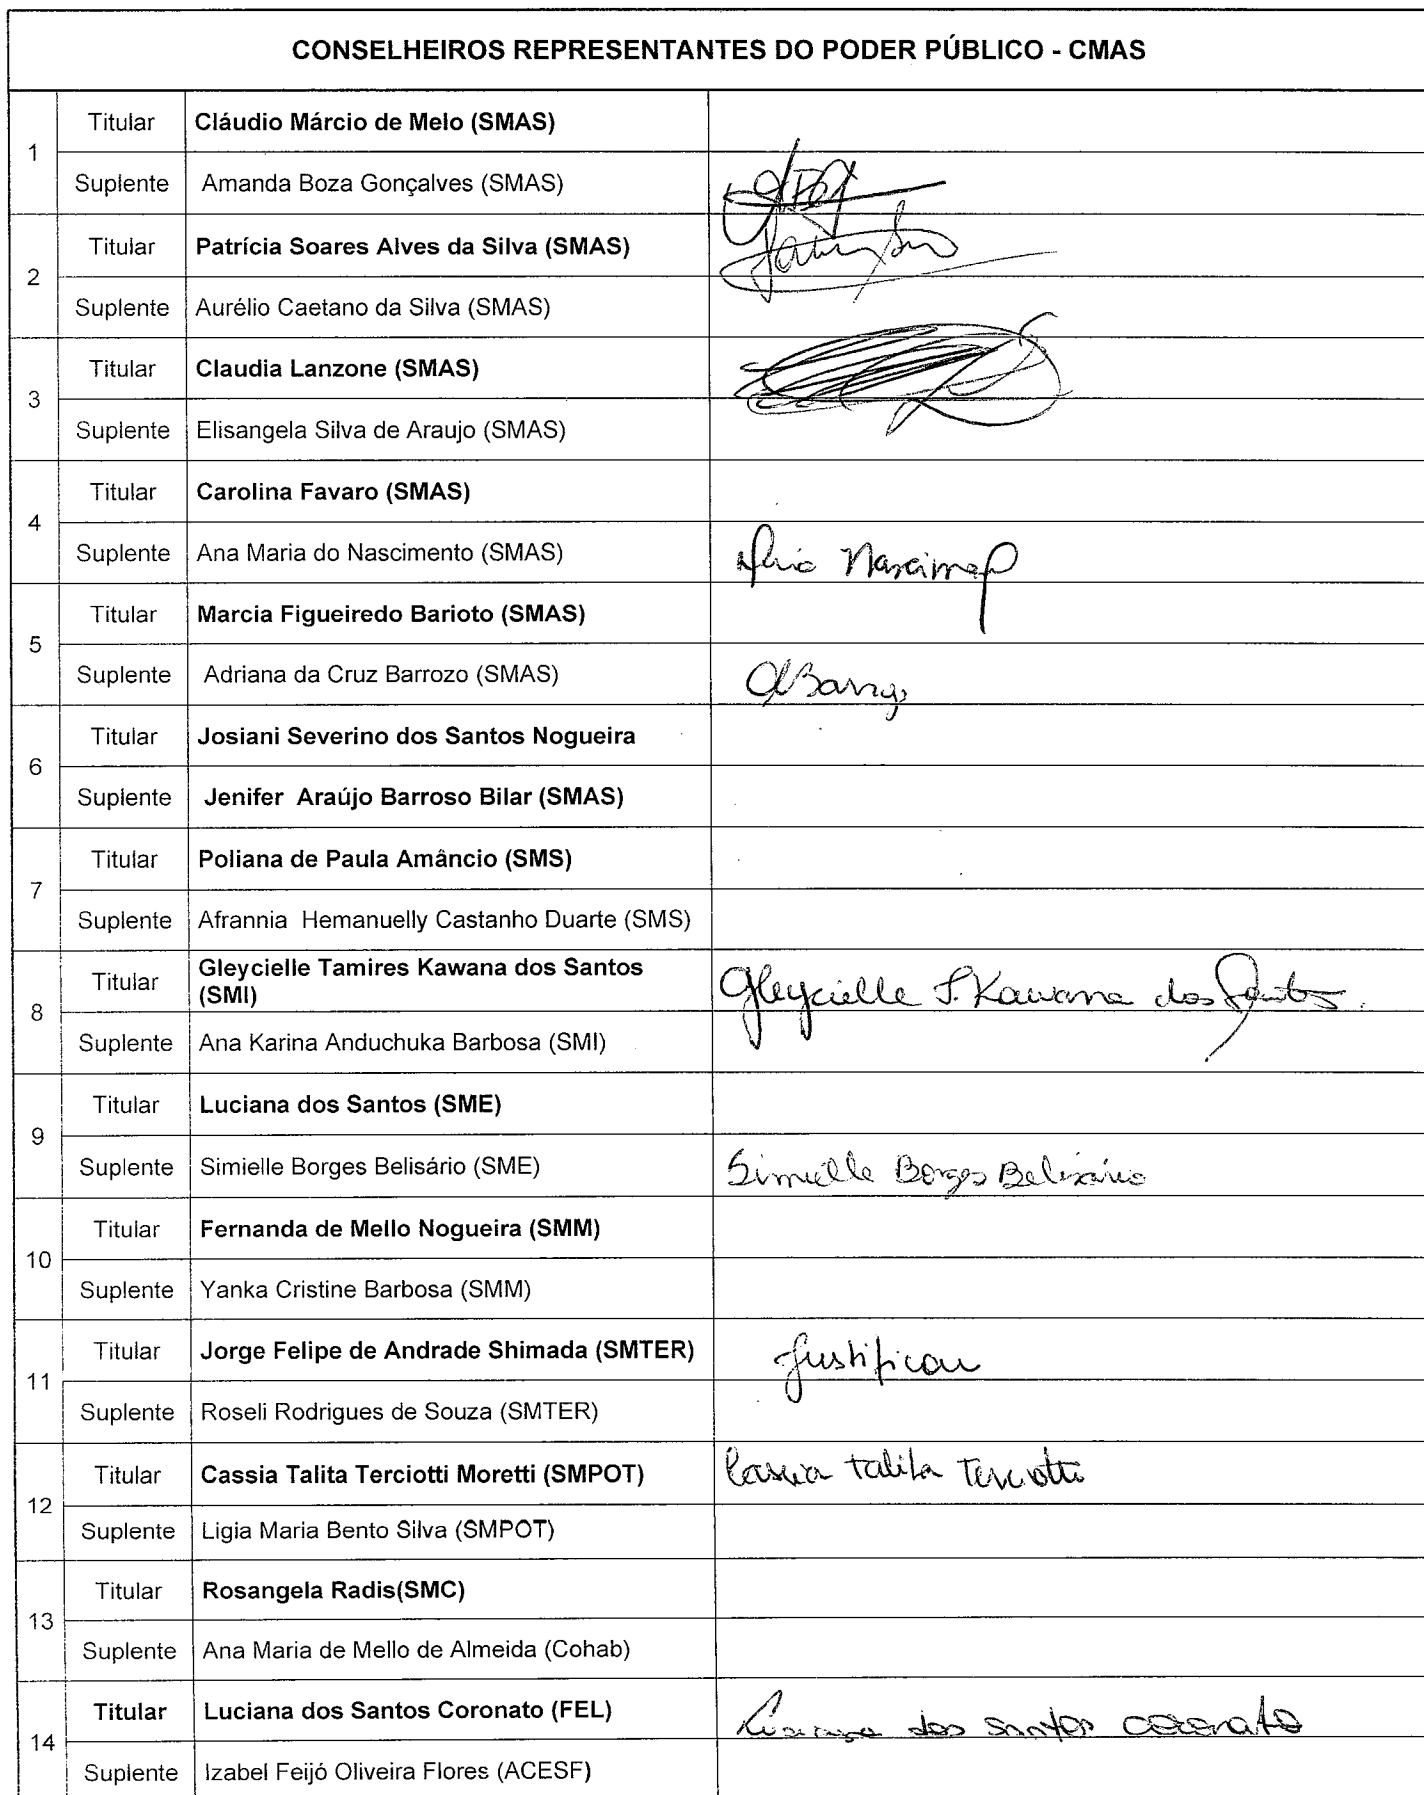 CONSELHEIROS REPRESENTANTES DO PODER PÚBLICO - CMAS
1
Titular Cláudio Márcio de Melo (SMAS)
Suplente Amanda Boza Gonçalves (SMAS)
2
Titular Patrícia Soares Alves da Silva (SMAS)
Suplente Aurélio Caetano da Silva (SMAS)
3
Titular Claudia Lanzone (SMAS)
Suplente Elisangela Silva de Araujo (SMAS)
4
Titular Carolina Favaro (SMAS)
Suplente Ana Maria do Nascimento (SMAS)
5
Titular Marcia Figueiredo Barioto (SMAS)
Suplente Adriana da Cruz Barrozo (SMAS)
6
Titular Josiani Severino dos Santos Nogueira
Suplente Jenifer Araújo Barroso Bilar (SMAS)
7
Titular Poliana de Paula Amâncio (SMS)
Suplente Afrannia Hemanuelly Castanho Duarte (SMS)
8
Titular Gleycielle Tamires Kawana dos Santos
(SMI) Gleycielle T. Kawana dos Santos.
Suplente Ana Karina Anduchuka Barbosa (SMI)
9
Titular Luciana dos Santos (SME)
Suplente Simielle Borges Belisário (SME) Simielle Borges Belisário
10
Titular Fernanda de Mello Nogueira (SMM)
Suplente Yanka Cristine Barbosa (SMM)
11
Titular Jorge Felipe de Andrade Shimada (SMTER) Justificou
Suplente Roseli Rodrigues de Souza (SMTER)
12
Titular Cassia Talita Terciotti Moretti (SMPOT) Cassia Talita Terciotti
Suplente Ligia Maria Bento Silva (SMPOT)
13
Titular Rosangela Radis(SMC)
Suplente Ana Maria de Mello de Almeida (Cohab)
14
Titular Luciana dos Santos Coronato (FEL) Luciana dos Santos Coronato
Suplente Izabel Feijó Oliveira Flores (ACESF)